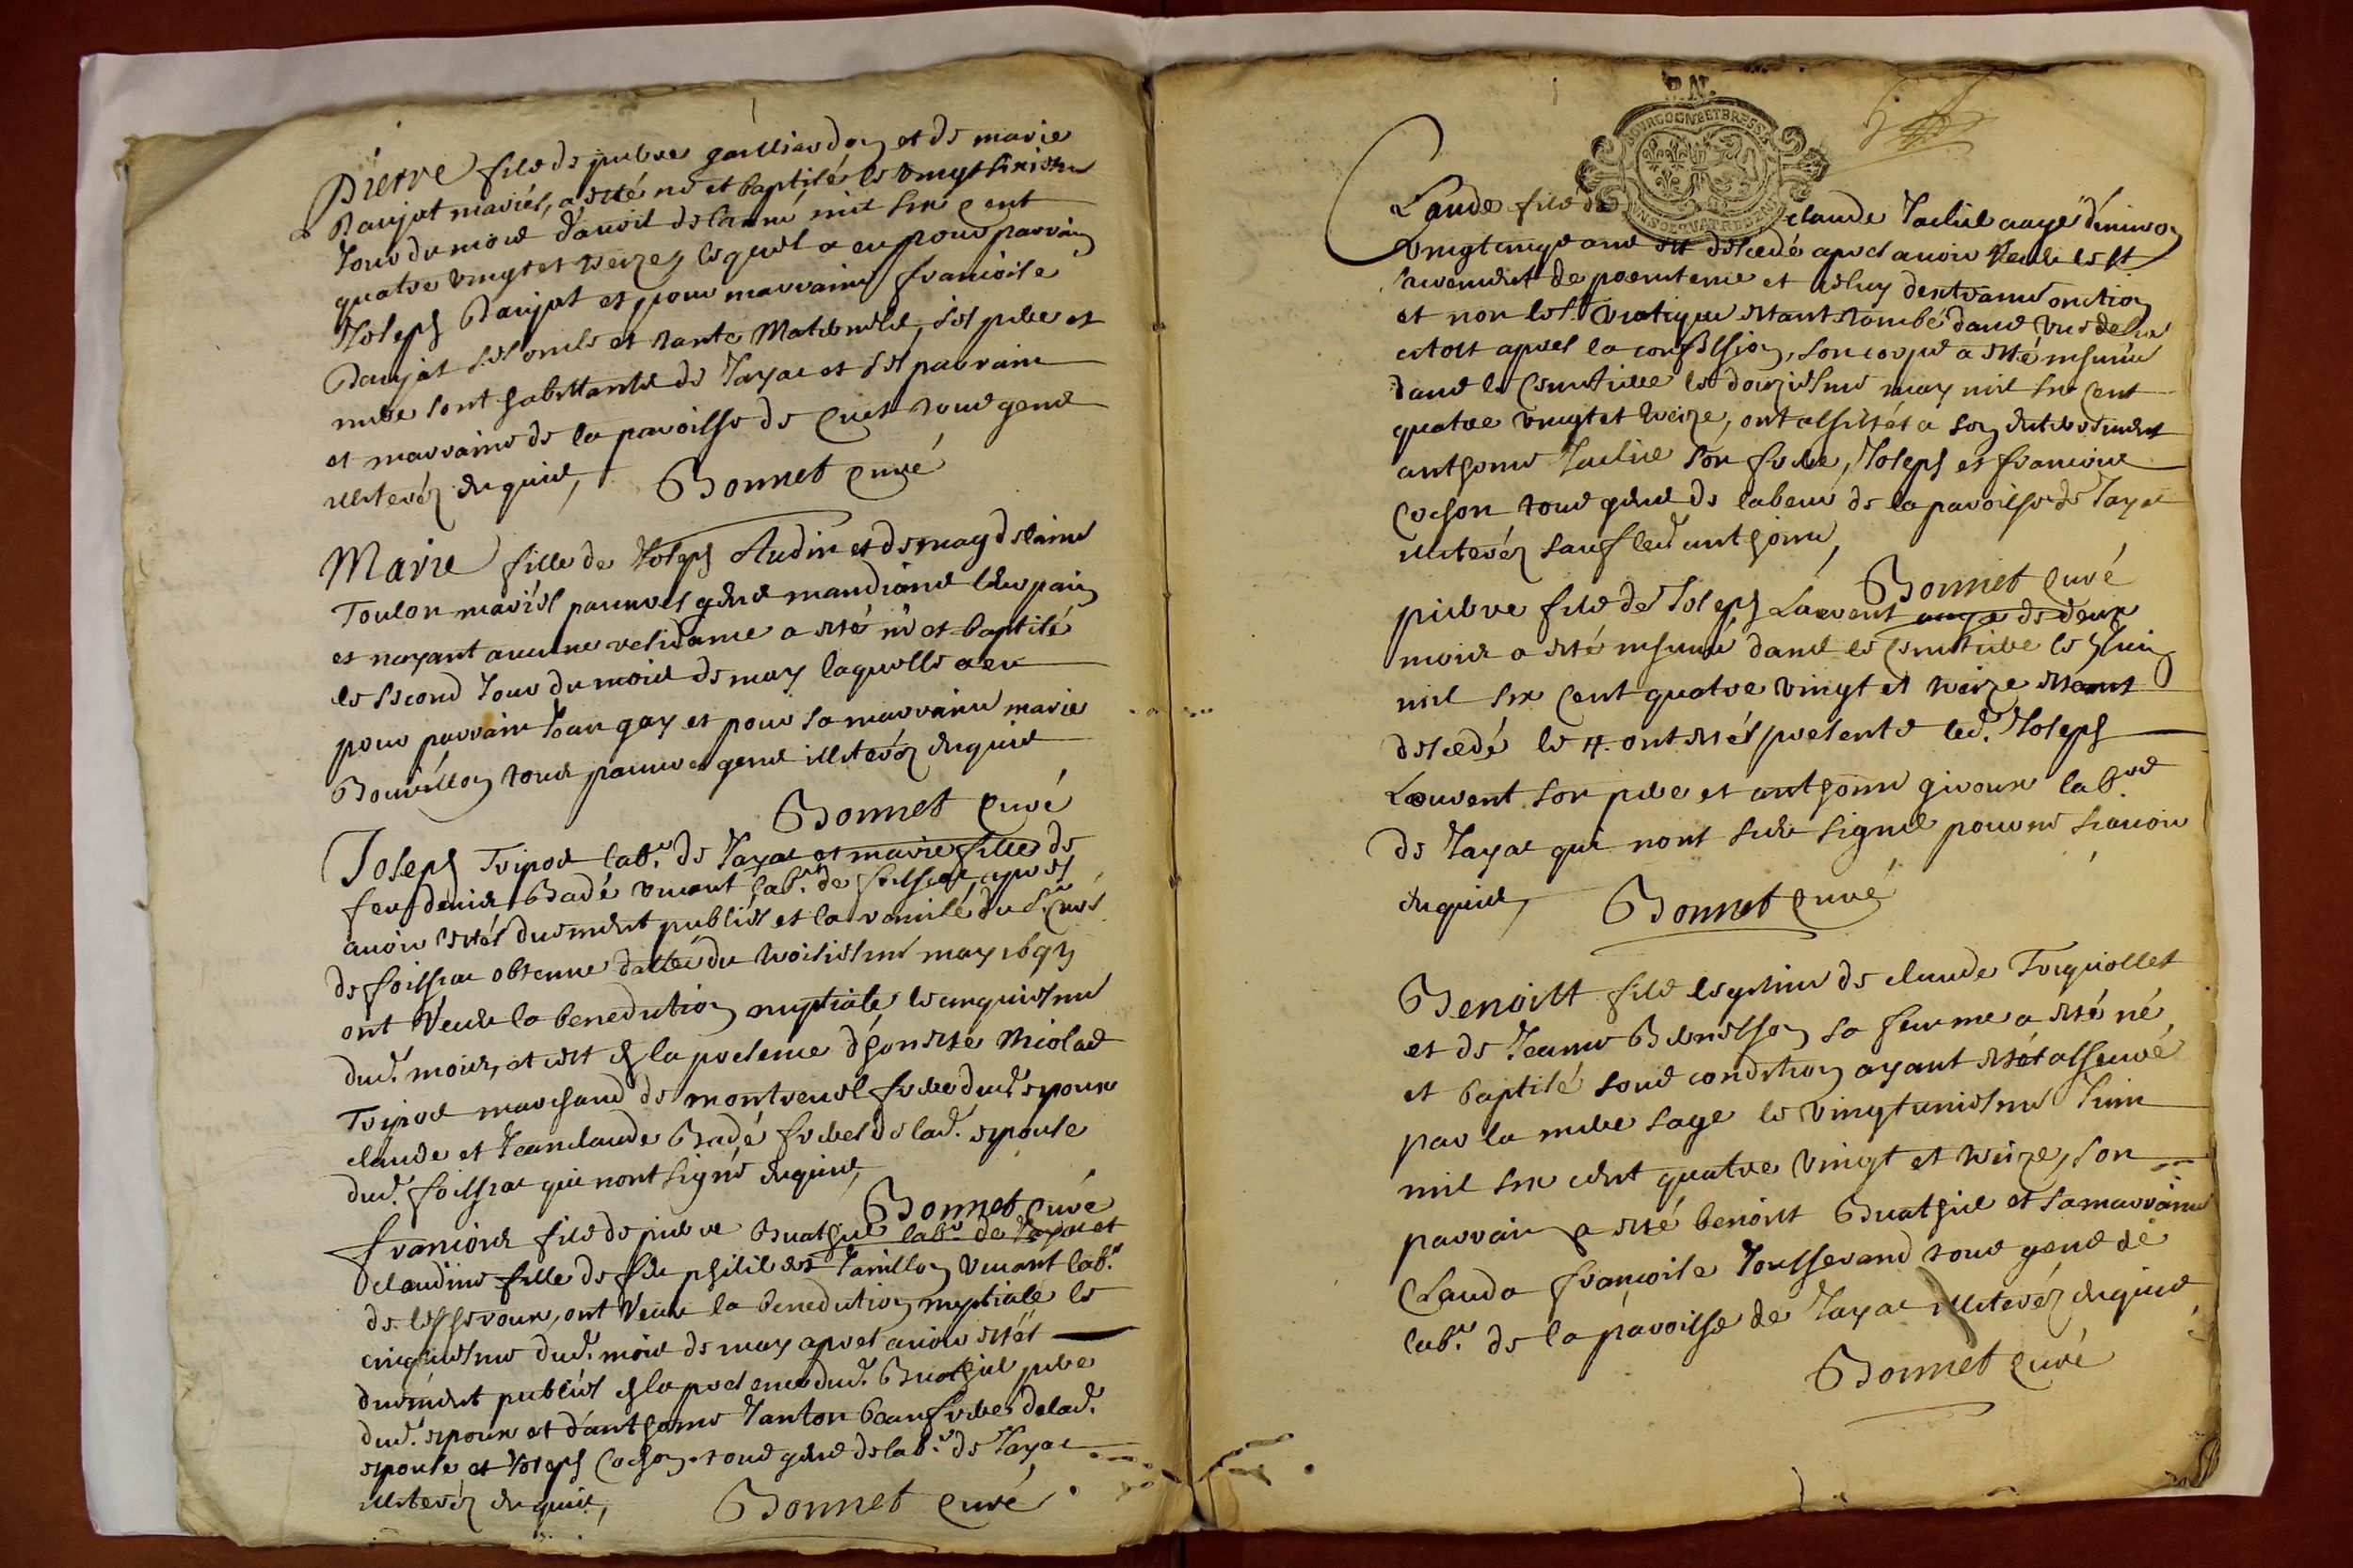 Pierre fils de pierre gailliardon et de marie
Paujat mariés, a esté né et baptisé le vingt sixiesme
Jour du mois d'auril de l'anné mil six cent
quatre vingt et treize, lequel a eu pour parrain
Joseph Paujat et pour marraine francoise
Paujat ses oncle et tante maternels, ses pere et
mere sont habittants de Jayat et ses parrain
et marraine de la paroisse de Cuet tous gens
illiteréz enquis, Bonnet curé
Marie fille de Joseph Audin et de magdelaine
Toulon mariés pauures gens mandians leur pain
et nayant aucune residance a esté né et baptisé
le second Jour du mois de may laquelle a eu
pour parrain Jean gay et pour sa marraine marie
Bouvillon tous pauures gens illiteréz enquis
Bonnet curé
Joseph Tripoz labr. de Jayat et marie fille de
feu denis Badé viuant labr. de foissiat, apres
auoir estés duement publiés et la remise du Sr. Curé
de foissiat obtenue dattée du troisiesme may 1693
ont receu la benediction nuptiale le cinquiesme
dud. mois, et cest en la presence d'honeste Nicolas
Tripoz marchand de montreuel frere dud. epoux
claude et Jeanclaude Badé freres de lad. epouse
dud. foissiat qui nont signé enquis,
Bonnet curé
francois fils de pierre Buathier labr. de Jayat et
claudine fille de feu philibert Janillon viuant labr.
de lescheroux, ont receu la benediction nuptiale le
cinquiesme dud. mois de may apres auoir estés
duement publiés en la presence dud. Buathier pere
dud. epoux et d'anthoine Janton beaufrere de lad.
epouse et Joseph Cochon tous gens de labr. de Jayat
illiteréz enquis, Bonnet curé
M.N.
BOURGOGNE ET BRESSE
Claude fils de claude Jaclier aagé d'enuiron
vingt cinq ans est decedé apres auoir receu le St
sacrement de poenitence et celuy d'extreme onction
et non le St. viatique estant tombé dans
apres la confession, son corps a esté inhumé
dans le Cemetiere le douziesme may mil six cent
quatre vingt et treize, ont assistés a son enterrement
anthoine Jaclier son frere, Joseph et francois
Cochon tous gens de labeur de la paroisse de Jayat
illiteréz sauf led anthoine,
Bonnet curé
pierre fils de Joseph Laurent aagé de deux
mois a esté inhumé dans le Cemetiere le 5 Juin
mil six cent quatre vingt et treize estant
decedé le 4. ont estés presents led. Joseph
Laurent son pere et anthoine giroux labrs
de Jayat qui nont sceu signer pour ne scauoir
enquis, Bonnet curé
Benoitt fils legitime de claude Torquollet
et de Jeanne Bernisson sa femme a esté né
et baptisé sous condition ayant estét asseuré
par la mere sage le vingtuniesme Juin
mil six cent quatre vingt et treize, son
parrain a esté benoist Buathier et sa marraine
Clauda françoise Jousserand tous gens de
labr. de la paroisse de Jayat illiteréz enquis
Bonnet curé